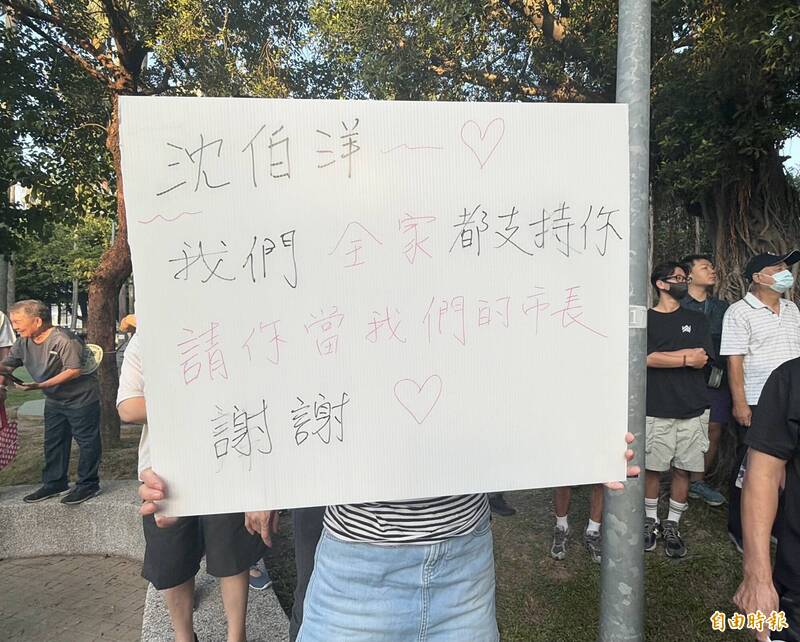 沈伯洋
我們全家都支持你
請你當我們的市長
謝謝
自由時報